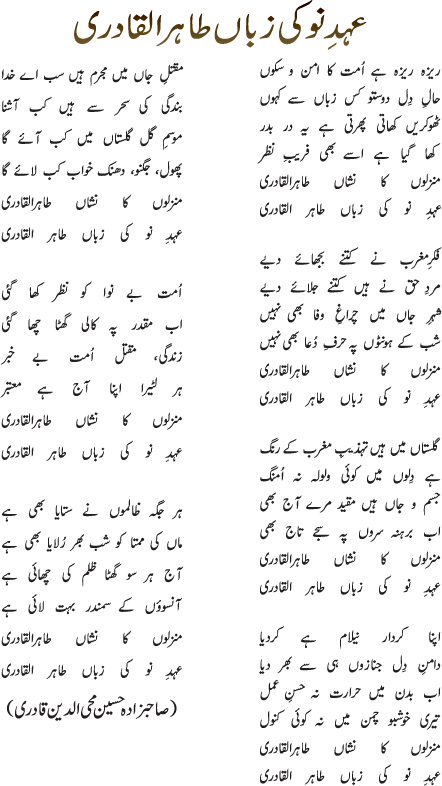 عہدِ نو کی زباں طاہرالقادری
ریزہ ریزہ ہے اُمت کا امن و سکوں
حالِ دِل دوستو کس زباں سے کہوں
ٹھوکریں کھاتی پھرتی ہے یہ در بدر
کھا گیا ہے اسے بھی فریبِ نظر
منزلوں کا نشاں طاہرالقادری
عہدِ نو کی زباں طاہر القادری
فکرِ مغرب نے کتنے بجھائے دیے
مردِ حق نے ہیں کتنے جلائے دیے
شہرِ جاں میں چراغِ وفا بھی نہیں
شب کے ہونٹوں پہ حرفِ دُعا بھی نہیں
منزلوں کا نشاں طاہرالقادری
عہدِ نو کی زباں طاہر القادری
گلستاں میں ہیں تہذیبِ مغرب کے رنگ
ہے دِلوں میں کوئی ولولہ نہ اُمنگ
جسم و جاں ہیں مقید مرے آج بھی
اب برہنہ سروں پہ سجے تاج بھی
منزلوں کا نشاں طاہرالقادری
عہدِ نو کی زباں طاہر القادری
اپنا کردار نیلام ہے کردیا
دامنِ دِل جنازوں ہی سے بھر دیا
اب بدن میں حرارت نہ حسنِ عمل
تیری خوشبو چمن میں نہ کوئی کنول
منزلوں کا نشاں طاہرالقادری
عہدِ نو کی زباں طاہر القادری
مقتلِ جاں میں مجرم ہیں سب اے خدا
بندگی کی سحر سے ہیں کب آشنا
موسمِ گل گلستاں میں کب آئے گا
پھول، جگنو، دھنک خواب کب لائے گا
منزلوں کا نشاں طاہرالقادری
عہدِ نو کی زباں طاہر القادری
اُمت بے نوا کو نظر کھا گئی
اب مقدر پہ کالی گھٹا چھا گئی
زندگی، مقتل اُمت بے خبر
ہر لٹیرا اپنا آج ہے معتبر
منزلوں کا نشاں طاہرالقادری
عہدِ نو کی زباں طاہر القادری
ہر جگہ ظالموں نے ستایا بھی ہے
ماں کی ممتا کو شب بھر رُلایا بھی ہے
آج ہر سو گھٹا ظلم کی چھائی ہے
آنسوؤں کے سمندر بہت لائی ہے
منزلوں کا نشاں طاہرالقادری
عہدِ نو کی زباں طاہر القادری
(صاحبزادہ حسین محی الدین قادری)